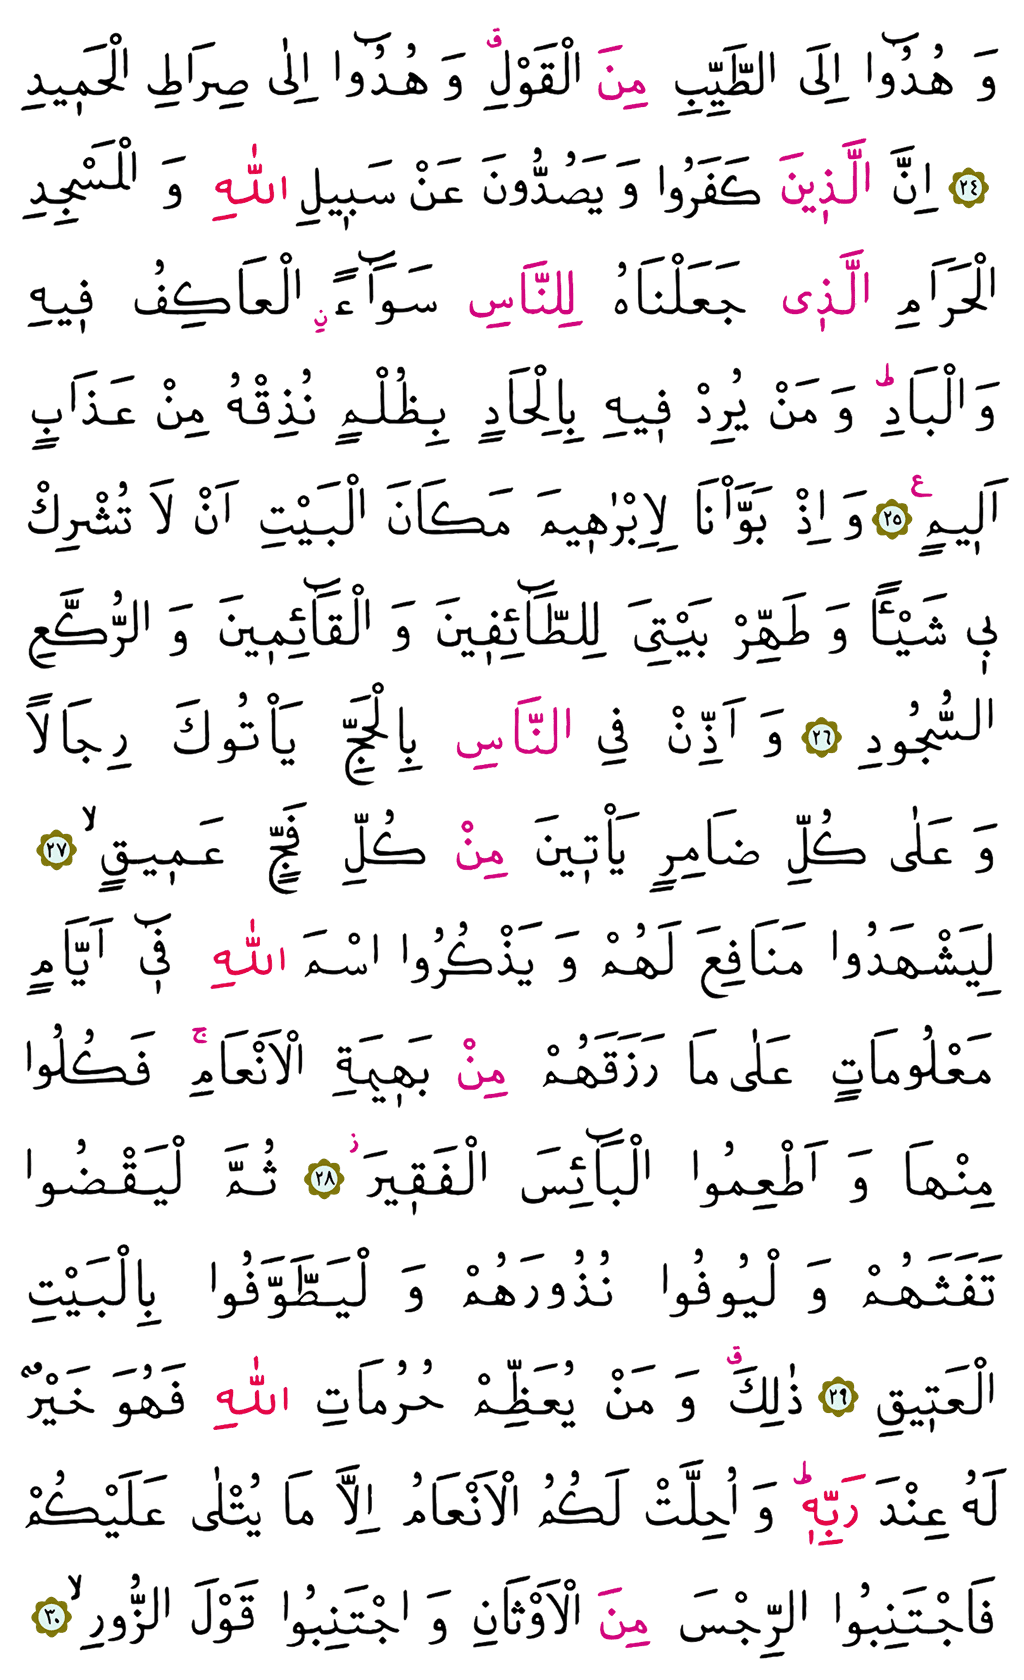 وَ هُدُٓوا اِلَى الطَّيِّبِ مِنَ الْقَوْلِۗ وَ هُدُٓوا اِلٰى صِرَاطِ الْحَم۪يدِ
﴿٢٤﴾ اِنَّ الَّذ۪ينَ كَفَرُوا وَ يَصُدُّونَ عَنْ سَب۪يلِ اللّٰهِ وَ الْمَسْجِدِ
الْحَرَامِ الَّذ۪ى جَعَلْنَاهُ لِلنَّاسِ سَوَٓاءًۨ الْعَاكِفُ ف۪يهِ
وَ الْبَادِۜ وَ مَنْ يُرِدْ ف۪يهِ بِاِلْحَادٍ بِظُلْمٍ نُذِقْهُ مِنْ عَذَابٍ
اَل۪يمٍ ع ﴿٢٥﴾ وَ اِذْ بَوَّاْنَا لِاِبْرٰه۪يمَ مَكَانَ الْبَيْتِ اَنْ لَا تُشْرِكْ
ب۪ى شَيْـًٔا وَ طَهِّرْ بَيْتِىَ لِلطَّٓائِف۪ينَ وَ الْقَٓائِم۪ينَ وَ الرُّكَّعِ
السُّجُودِ ﴿٢٦﴾ وَ اَذِّنْ فِى النَّاسِ بِالْحَجِّ يَاْتُوكَ رِجَالًا
وَ عَلٰى كُلِّ ضَامِرٍ يَاْت۪ينَ مِنْ كُلِّ فَجٍّ عَم۪يقٍۙ ﴿٢٧﴾
لِيَشْهَدُوا مَنَافِعَ لَهُمْ وَ يَذْكُرُوا اسْمَ اللّٰهِ ف۪ٓى اَيَّامٍ
مَعْلُومَاتٍ عَلٰى مَا رَزَقَهُمْ مِنْ بَه۪يمَةِ الْاَنْعَامِۚ فَكُلُوا
مِنْهَا وَ اَطْعِمُوا الْبَٓائِسَ الْفَق۪يرَۘ ﴿٢٨﴾ ثُمَّ لْيَقْضُوا
تَفَثَهُمْ وَ لْيُوفُوا نُذُورَهُمْ وَ لْيَطَّوَّفُوا بِالْبَيْتِ
الْعَت۪يقِ ﴿٢٩﴾ ذٰلِكَۗ وَ مَنْ يُعَظِّمْ حُرُمَاتِ اللّٰهِ فَهُوَ خَيْرٌ
لَهُ عِنْدَ رَبِّه۪ۜ وَ اُحِلَّتْ لَكُمُ الْاَنْعَامُ اِلَّا مَا يُتْلٰى عَلَيْكُمْ
فَاجْتَنِبُوا الرِّجْسَ مِنَ الْاَوْثَانِ وَ اجْتَنِبُوا قَوْلَ الزُّورِۙ ﴿٣٠﴾